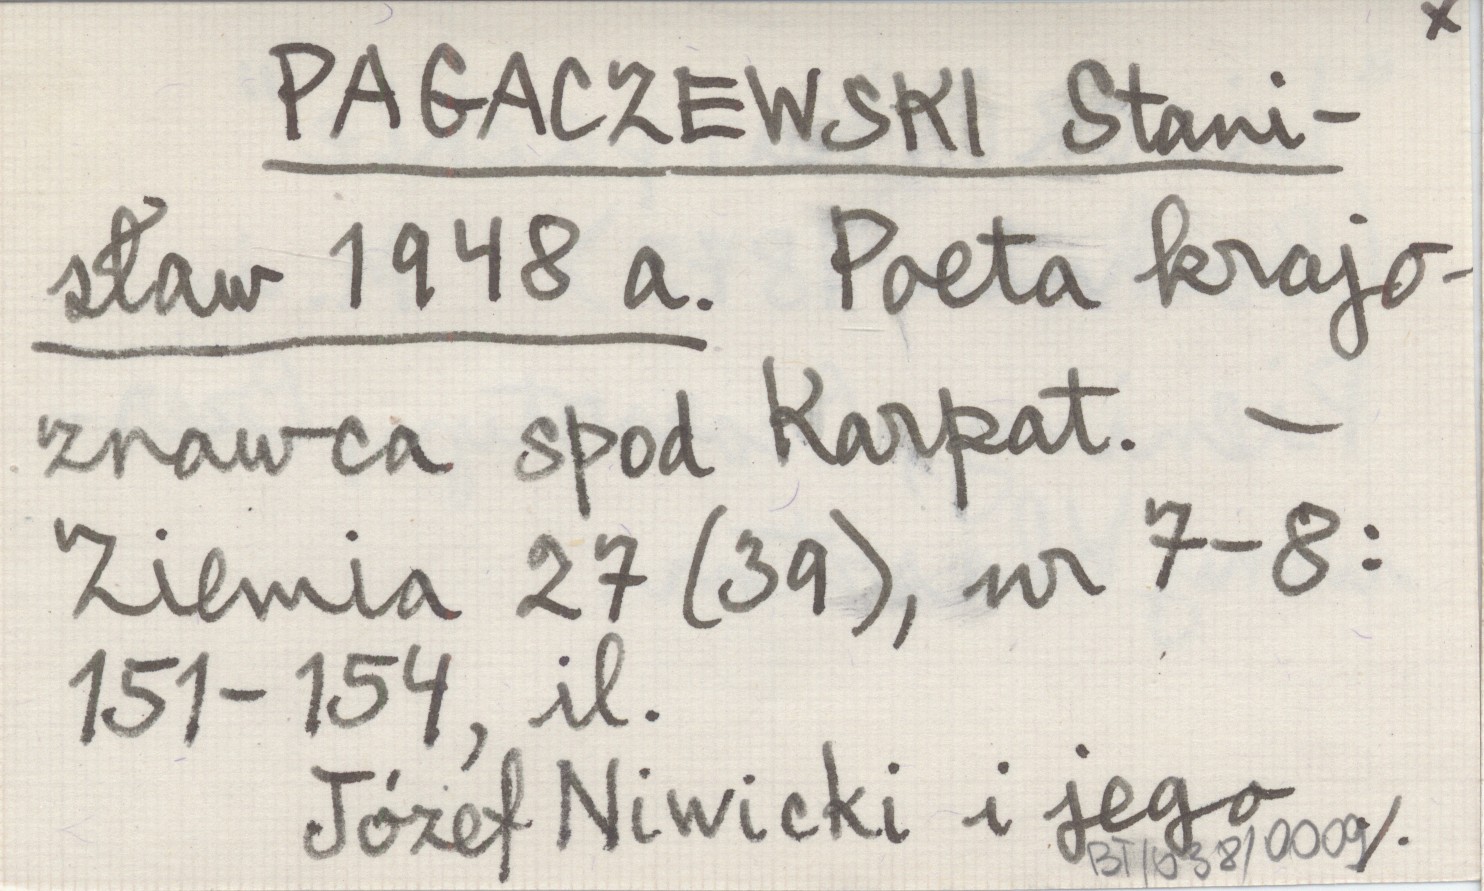 x
PAGACZEWSKI Stani-
sław 1948 a. Poeta krajo-
znawca spod Karpat. –
Ziemia 27 (39), nr 7-8:
151-154, il.
Józef Niwicki i jego ./.
BT/038/0009